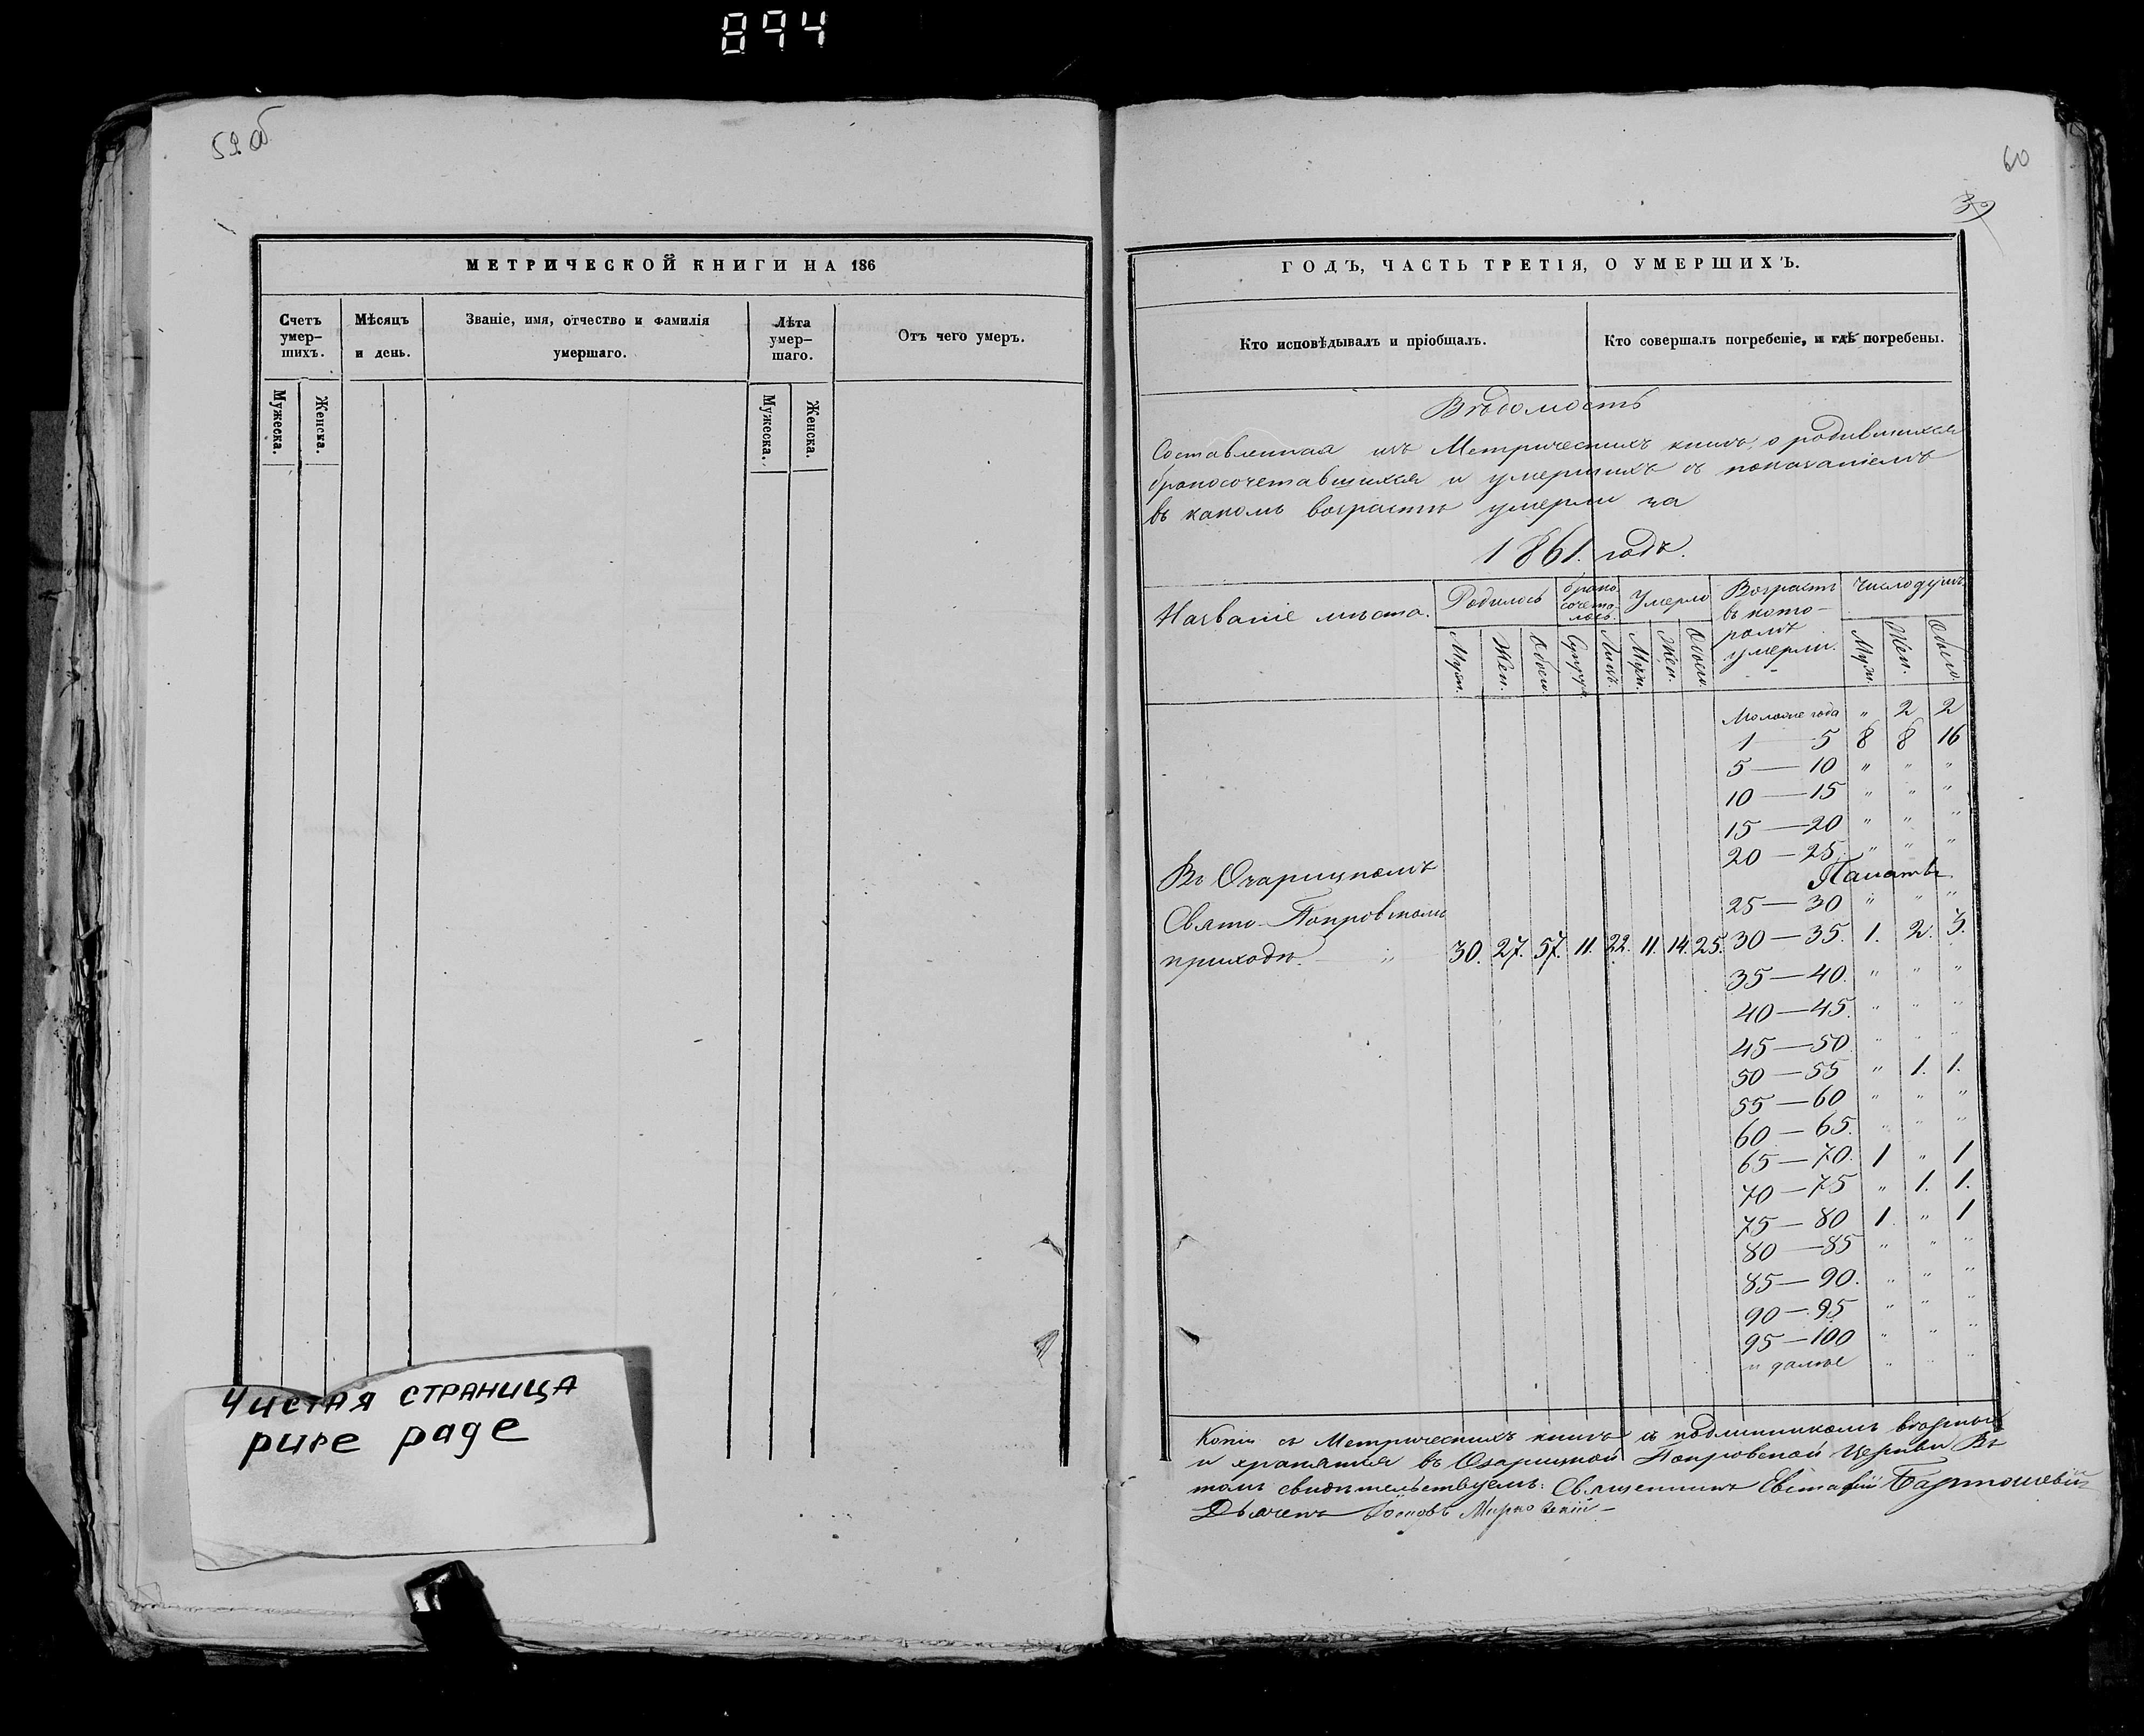 894
59 об
МЕТРИЧЕСКОЙ КНИГИ НА 186
Счетъ умер-шихъ.
Мѣсяцъ и день.
Званіе, имя, отчество и фамилія умершаго.
Лѣта умер-шаго.
Отъ чего умеръ.
Мужеска.
Женска.
Мужеска.
Женска.
Чистая страница
pure page
60
39
ГОДЪ, ЧАСТЬ ТРЕТІЯ, О УМЕРШИХЪ.
Кто исповѣдывалъ и пріобщалъ.
Кто совершалъ погребеніе, и гдѣ погребены.
Вѣдомость
Составленная изъ Метрическихъ книгъ, о родившихся
бракосочетавшихся и умершихъ съ показаніемъ
въ какомъ возрастѣ умерли за
1861. годъ.
Названіе мѣста.
Родилось
Брако сочета лось.
Умерло
Возрастъ въ кото-ромъ умерли.
Число душъ.
Муж. Жен. Обоего. Супруж. Лицъ. Муж. Жен. Обоего. Муж. Жен. Обоего.
Моложе года " 2 2
1 — 5 8 8 16
5 — 10 " " "
10 — 15 " " "
15 — 20 " " "
20 — 25. " " "
25 — 30 " " "
Въ Озарицкомъ
Свято-Покровскомъ
приходѣ. — " 30. 27. 57. 11. 22. 11. 14. 25. 30 — 35. 1. 2. 3.
35 — 40. " " "
40 — 45. " " "
45 — 50. " " "
50 — 55 " 1. 1.
55 — 60 " " "
60 — 65. " " "
65 — 70. 1 " 1
70 — 75 " 1. 1.
75 — 80 1. " 1
80 — 85 " " "
85 — 90. " " "
90 — 95 " " "
95 — 100 " " "
и далѣе " " "
Копія съ Метрическихъ книгъ съ подлинникомъ
и хранится въ Озарицкой Покровской Церкви Въ
томъ свидѣтельствуемъ: Священникъ Евстафій Бартошевичъ
Дьячекъ Іосифъ